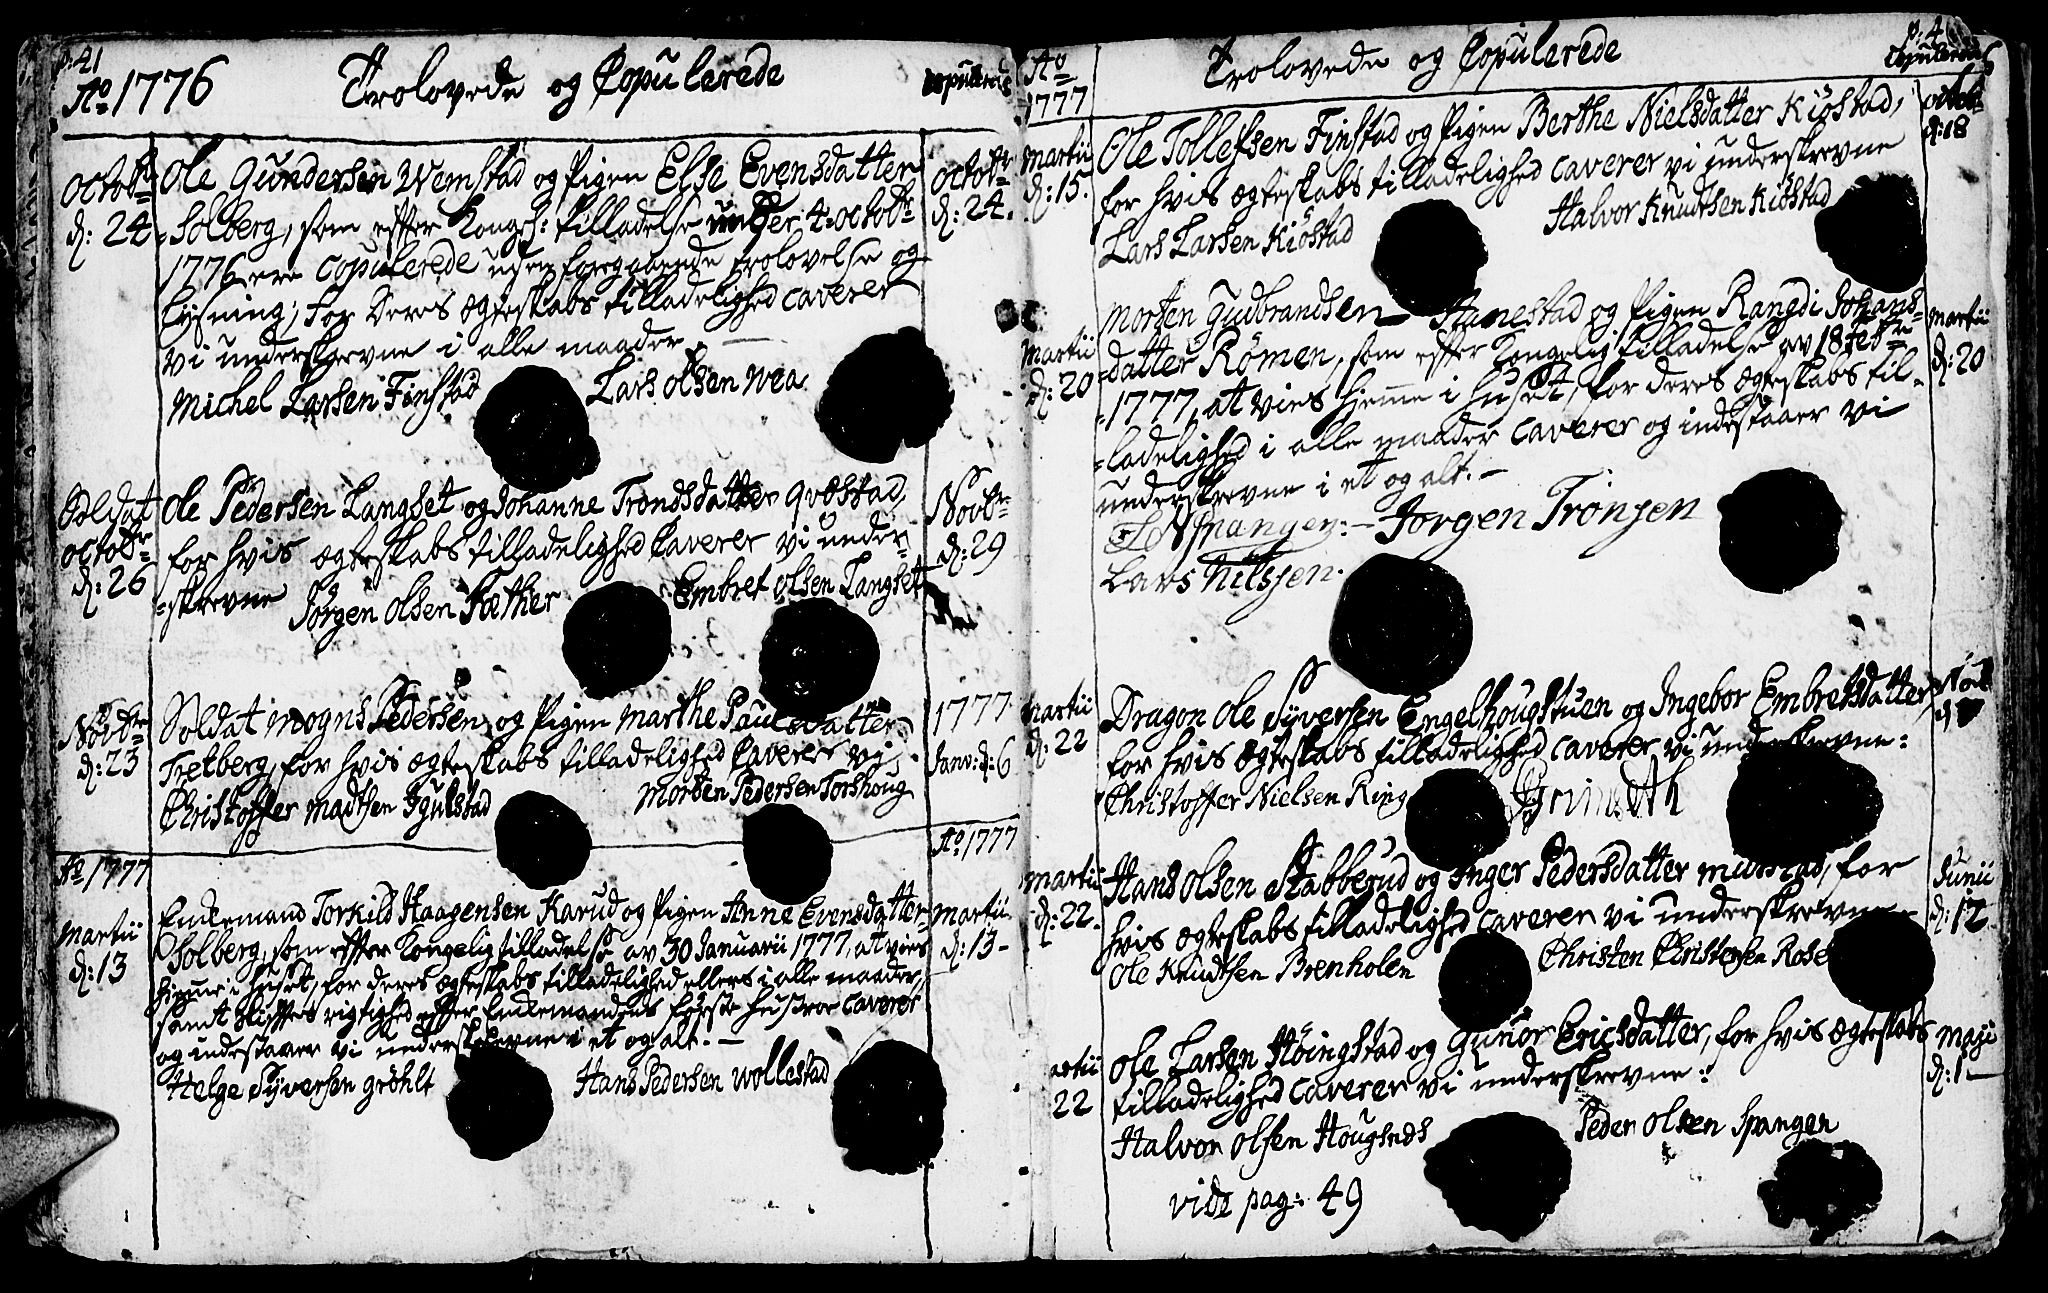 p: 41
Ao 1776 Trolovede og Copulerede Copulerede
Octobr: d: 24
Ole Gundersen Wemstad og Pigen Else Evensdatter
Solberg, som effter Kongel: tilladelse under 4: octobr:
1776 ere copulerede uden foregaaende trolovelse og
lysning; for deres ægteskabs tilladelighed caverer
vi underskrevne i alle maader.
Michel Larsen Finstad Lars Olsen Wea
octobr: d: 24.
Soldat octobr: d: 26
Ole Pedersen Langset og Johanne Trondsdatter Qvæstad,
for hvis ægteskabs tilladelighed Caverer vi under-
=skrevne Jörgen Olsen Sæther Embret Olsen Langset
Novbr: d: 29
Novbr: d: 23
Soldat Mogns Pedersen og Pigen Marthe Paulsdatter
Tretberg, for hvis ægteskabs tilladelighed Caverer vi
Christoffer Madtsen Igulstad Morten Pedersen Torshoug
1777 Janv: d: 6
Ao 1777 Ao 1777
Martii d: 13
Enkemand Torkild Haagensen Karud og Pigen Anne Evensdatter
Solberg, som effter Kongelig tilladelse av 30 Januarii 1777, at vies
hjemme i huset, for deres ægteskabs tilladelighed ellers i alle maader,
samt skifftes rigtighed effter Enkemandens förste hustroe caverer
og indestaaer vi underskrevne i et og alt. -
Helge Syversen gröhlt Hans Pedersen Wollestad
Martii d: 13
p: 4
Ao 1777 Trolovede og Copulerede Copulerede
Martii d: 15.
Ole Tollefsen Finstad og Pigen Berthe Nielsdatter Kiöstad,
for hvis ægteskabs tilladelighed caverer vi underskrevne
Lars Larsen Kiöstad Halvor Knudtsen Kiöstad
octobr: d: 18
Martii d: 20
Morten Gudbrandsen Hanestad og Pigen Rangdi Johans-
=datter Römen, som effter Kongelig tilladelse av 18 Febr:
=1777, at vies hjemme i huset, for deres ægteskabs til-
=ladelighed i alle maader caverer og indestaaer vi
underskrevne i et og alt. -
Spangen: - Jorgen Tronsen
Lars Nilssen.
Martii d: 20
Martii d: 22
Dragon Ole Syversen Engelhougstuen og Ingebor Embretsdatter,
for hvis ægteskabs tilladelighed caverer vi underskrevne:
Christoffer Nielsen Ring
Martii d: 22.
Hans Olsen Stabberud og Inger Pedersdatter Mustad, for
hvis ægteskabs tilladelighed caverer vi underskrevne
Ole Knudtsen Brenholen Christen Christensen
Junii d: 12
artii 22
Ole Larsen Höingstad og Gunor Ericsdatter, for hvis ægteskabs
tilladelighed caverer vi underskrevne:
Halvor Olsen Hougseds Peder Olsen Spangen
Maji d: 1
vide pag: 49